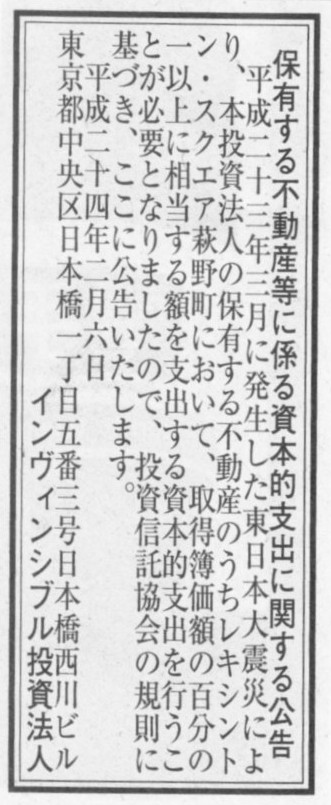 保有する不動産等に係る資本的支出に関する公告
平成二十三年三月に発生した東日本大震災によ
り、本投資法人の保有する不動産のうちレキシント
ン・スクエア萩野町において、取得簿価額の百分の
一以上に相当する額を支出する資本的支出を行うこ
とが必要となりましたので、投資信託協会の規則に
基づき、ここに公告いたします。
平成二十四年二月六日
東京都中央区日本橋一丁目五番三号日本橋西川ビル
インヴィンシブル投資法人